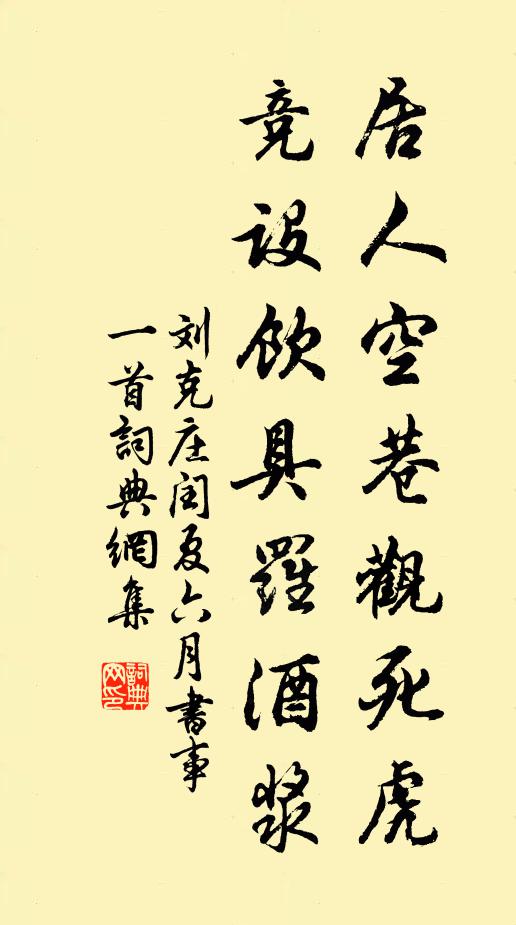 居人空巷觀死虎
竞设飲具羅酒漿
刘克庄闰夏六月書事
一首詞典網集
詞典网印